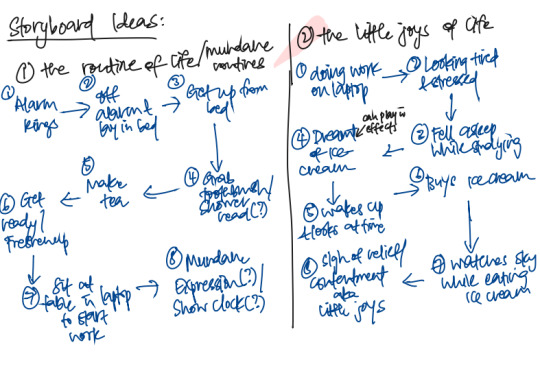 Storyboard Ideas:
① the routine of life/mundane
routines
① Alarm
rings
② off
alarm &
lay in bed
③ Get up from
bed
④ Grab
toothbrush/
shower
read(?)
⑤ Make
tea
⑥ Get
ready/
Freshen up
⑦ Sit at
table in laptop
to start
work
⑧ Mundane
Expression(?)/
Show clock(?)
② the little joys of life
① doing work
on laptop
② Looking tired
& stressed
③ Fell asleep
while studying
④ Dreams
of ice
cream
can play in
effects
⑤ wakes up
& looks at time
⑥ Buys ice cream
⑦ watches sky
while eating
ice cream
⑧ Sigh of relief/
contentment
aka
little joys